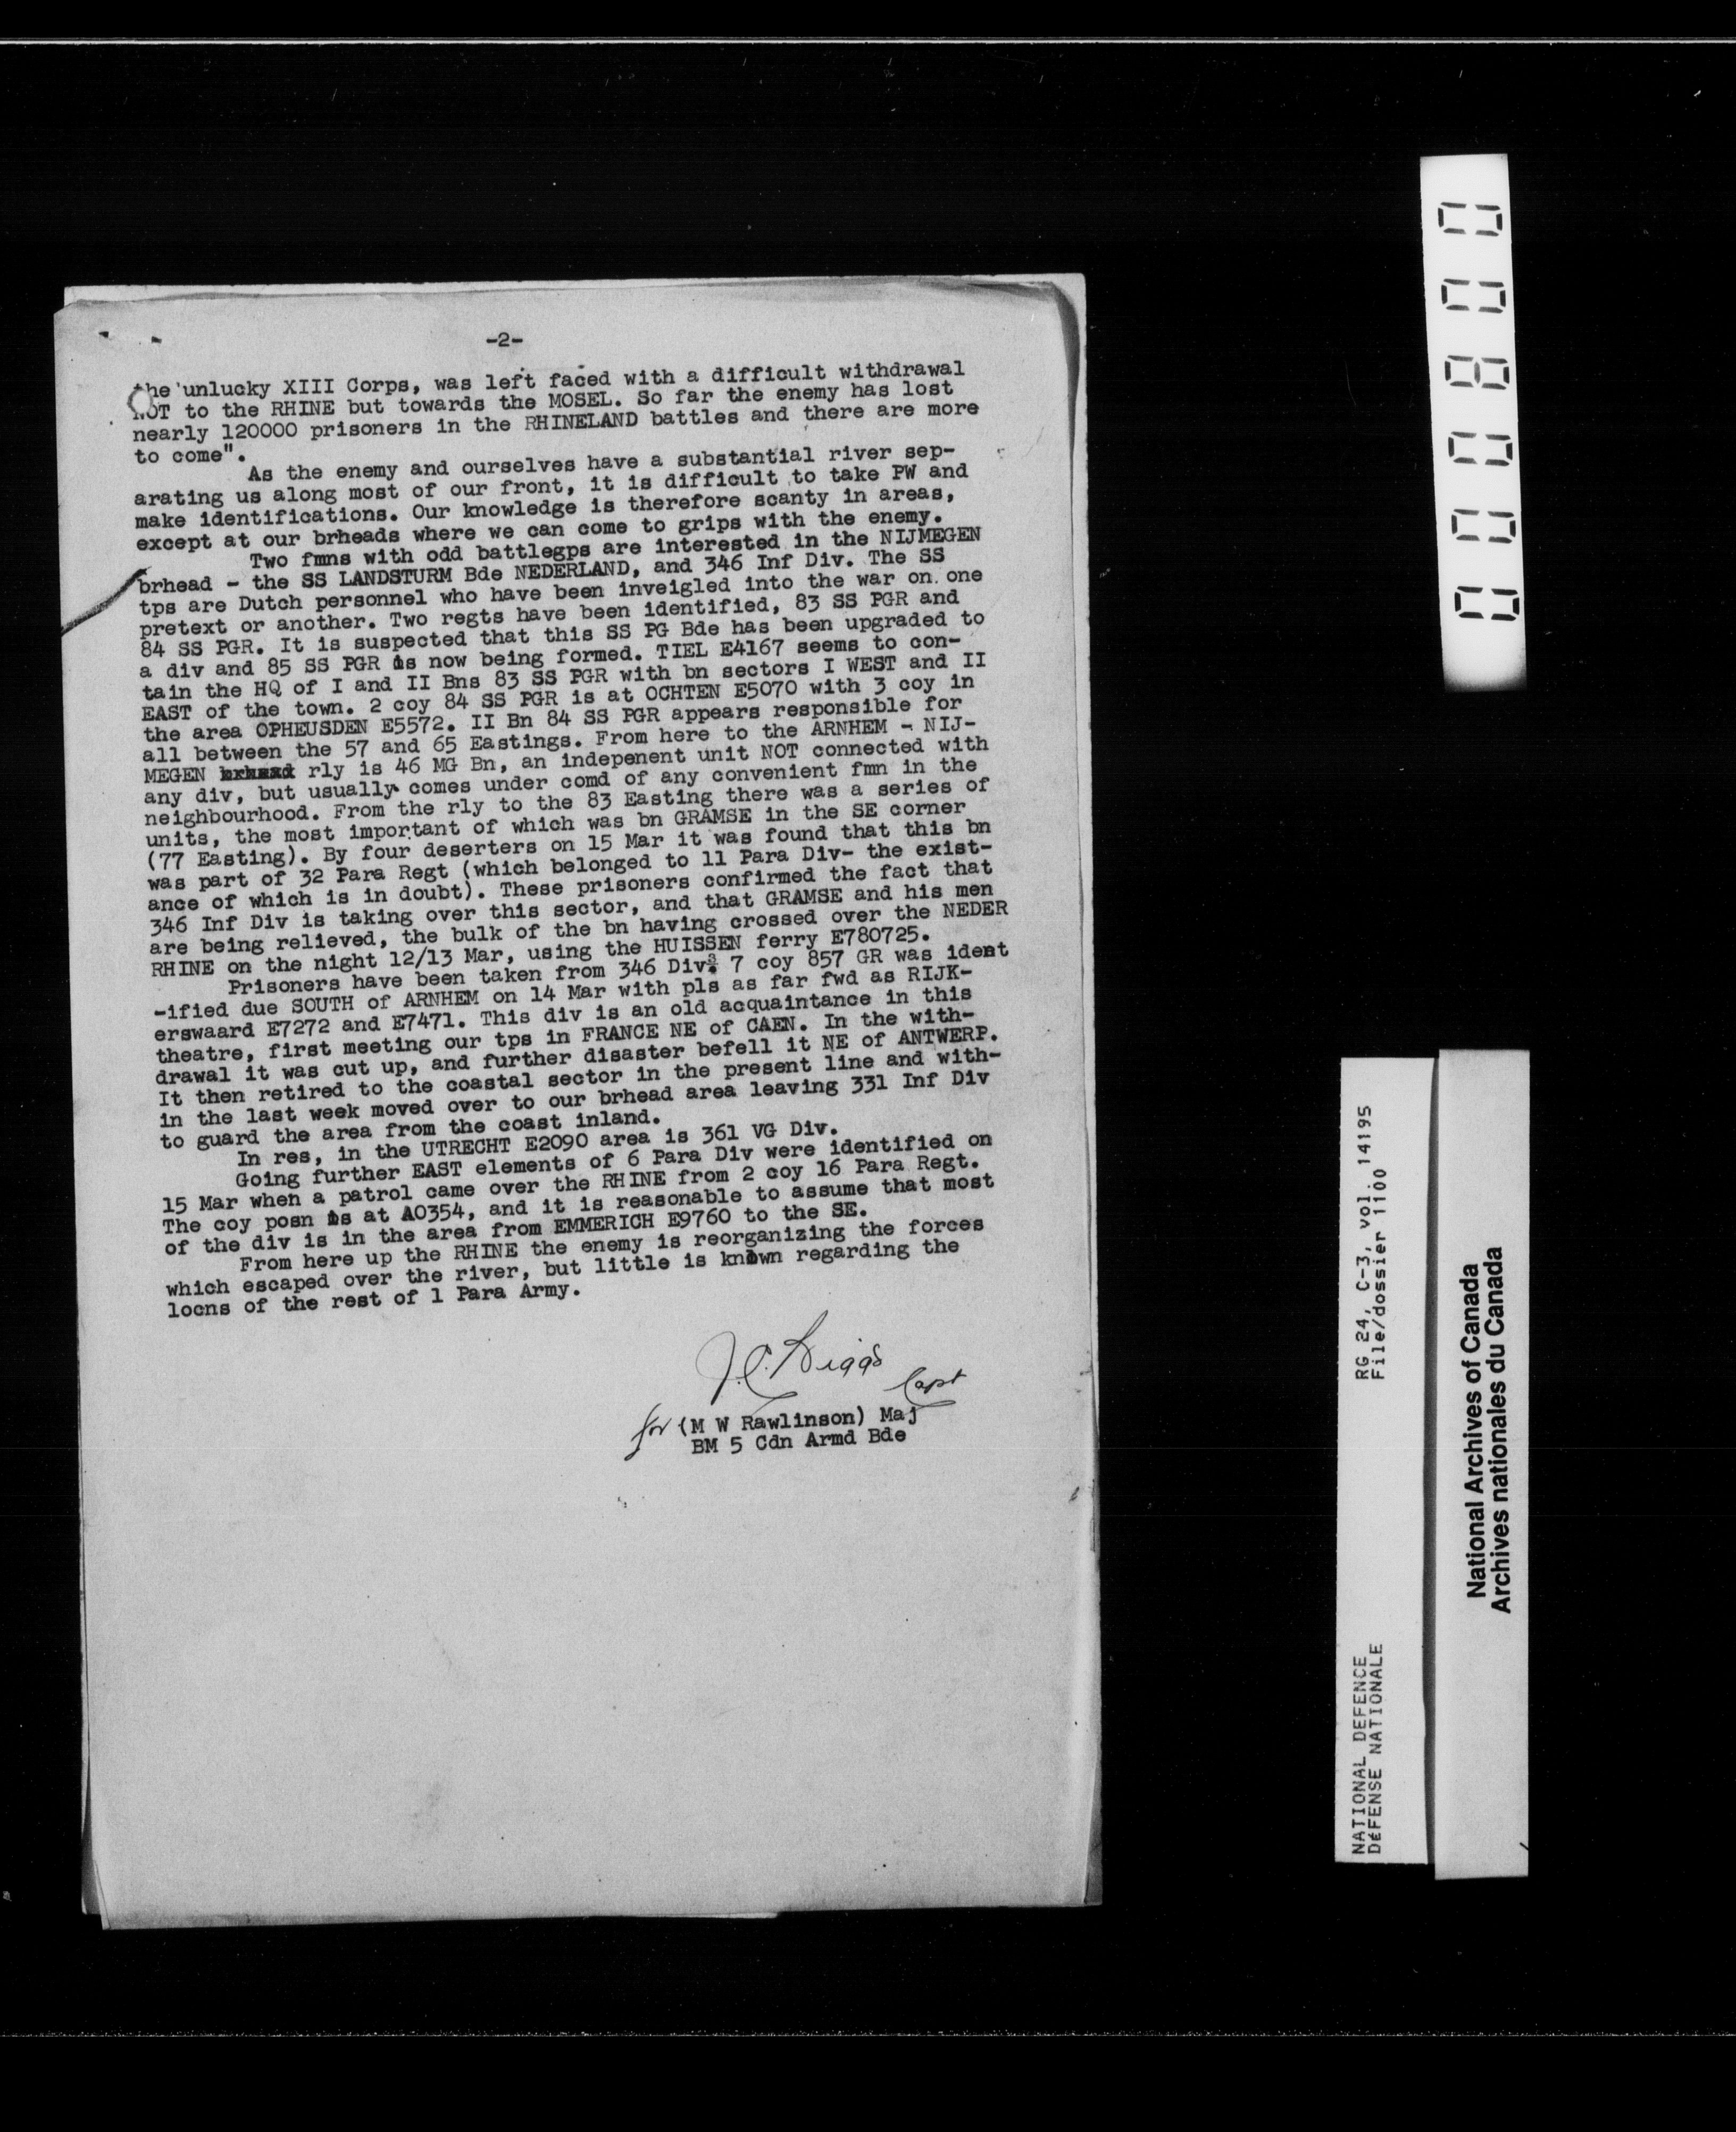 -2-
the unlucky XIII Corps, was left faced with a difficult withdrawal
NOT to the RHINE but towards the MOSEL. So far the enemy has lost
nearly 120000 prisoners in the RHINELAND battles and there are more
to come".
As the enemy and ourselves have a substantial river sep-
arating us along most of our front, it is difficult to take PW and
make identifications. Our knowledge is therefore scanty in areas,
except at our brheads where we can come to grips with the enemy.
Two fmns with odd battlegps are interested in the NIJMEGEN
brhead - the SS LANDSTURM Bde NEDERLAND, and 346 Inf Div. The SS
tps are Dutch personnel who have been inveigled into the war on one
pretext or another. Two regts have been identified, 83 SS PGR and
84 SS PGR. It is suspected that this SS PG Bde has been upgraded to
a div and 85 SS PGR is now being formed. TIEL E4167 seems to con-
tain the HQ of I and II Bns 83 SS PGR with bn sectors I WEST and II
EAST of the town. 2 coy 84 SS PGR is at OCHTEN E5070 with 3 coy in
the area OPHEUSDEN E5572. II Bn 84 SS PGR appears responsible for
all between the 57 and 65 Eastings. From here to the ARNHEM - NIJ-
MEGEN rly is 46 MG Bn, an indepenent unit NOT connected with
any div, but usually comes under comd of any convenient fmn in the
neighbourhood. From the rly to the 83 Easting there was a series of
units, the most important of which was bn GRAMSE in the SE corner
(77 Easting). By four deserters on 15 Mar it was found that this bn
was part of 32 Para Regt (which belonged to 11 Para Div- the exist-
ance of which is in doubt). These prisoners confirmed the fact that
346 Inf Div is taking over this sector, and that GRAMSE and his men
are being relieved, the bulk of the bn having crossed over the NEDER
RHINE on the night 12/13 Mar, using the HUISSEN ferry E780725.
Prisoners have been taken from 346 Div. 7 coy 857 GR was ident
-ified due SOUTH of ARNHEM on 14 Mar with pls as far fwd as RIJK-
erswaard E7272 and E7471. This div is an old acquaintance in this
theatre, first meeting our tps in FRANCE NE of CAEN. In the with-
drawal it was cut up, and further disaster befell it NE of ANTWERP.
It then retired to the coastal sector in the present line and with-
in the last week moved over to our brhead area leaving 331 Inf Div
to guard the area from the coast inland.
In res, in the UTRECHT E2090 area is 361 VG Div.
Going further EAST elements of 6 Para Div were identified on
15 Mar when a patrol came over the RHINE from 2 coy 16 Para Regt.
The coy posn is at A0354, and it is reasonable to assume that most
of the div is in the area from EMMERICH E9760 to the SE.
From here up the RHINE the enemy is reorganizing the forces
which escaped over the river, but little is known regarding the
locns of the rest of 1 Para Army.
Capt
for (M W Rawlinson) Maj
BM 5 Cdn Armd Bde
RG 24, C-3, vol. 14195
File/dossier 1100
NATIONAL DEFENCE
DéFENSE NATIONALE
National Archives of Canada
Archives nationales du Canada